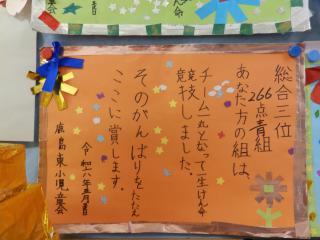 総合三位
266点青組
あなた方の組は、
チーム一丸となって一生けん命
競技しました。
そのがんばりをたたえ
ここに賞します。
令和六年五月
鹿島東小児童会